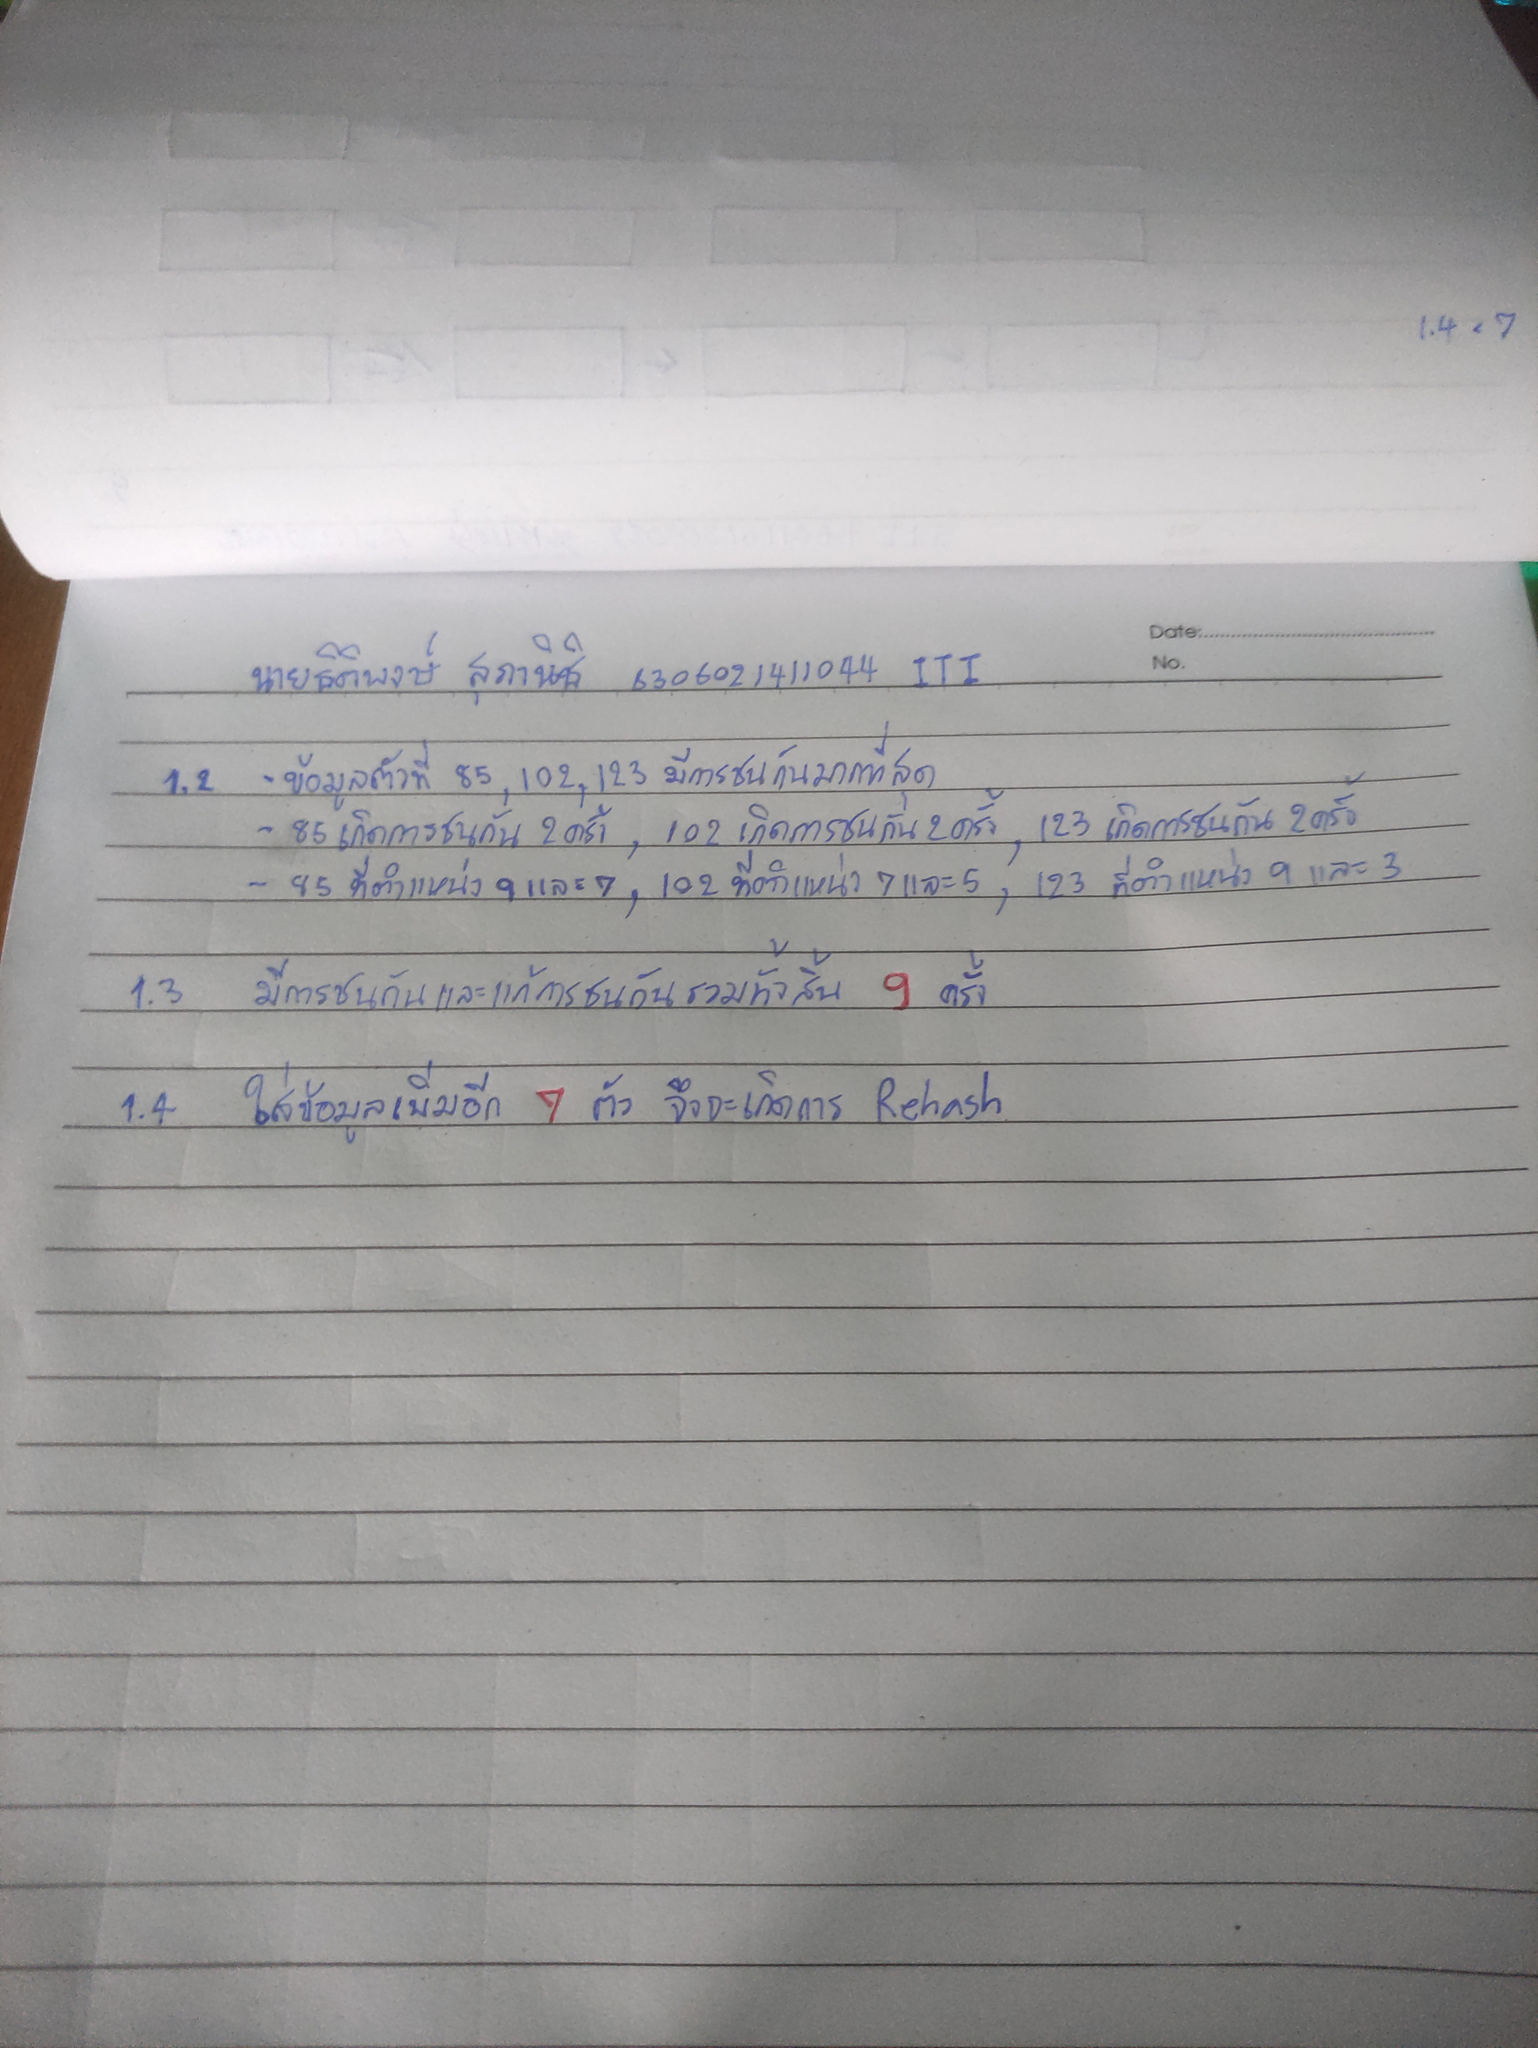 1.4 < 7
Date:
No.
นายธิติพงษ์ สุภานิชิ 6306021411044 ITI
1.2 - ข้อมูลตัวที่ 85, 102, 123 มีการชนกันมากที่สุด
- 85 เกิดการชนกัน 2 ครั้ง, 102 เกิดการชนกัน 2 ครั้ง, 123 เกิดการชนกัน 2 ครั้ง
- 85 ที่ตำแหน่ง 9 และ 7, 102 ที่ตำแหน่ง 7 และ 5, 123 ที่ตำแหน่ง 9 และ 3
1.3 มีการชนกันและแก้การชนกันรวมทั้งสิ้น 9 ครั้ง
1.4 ใส่ข้อมูลเพิ่มอีก 7 ตัว จึงจะเกิดการ Rehash